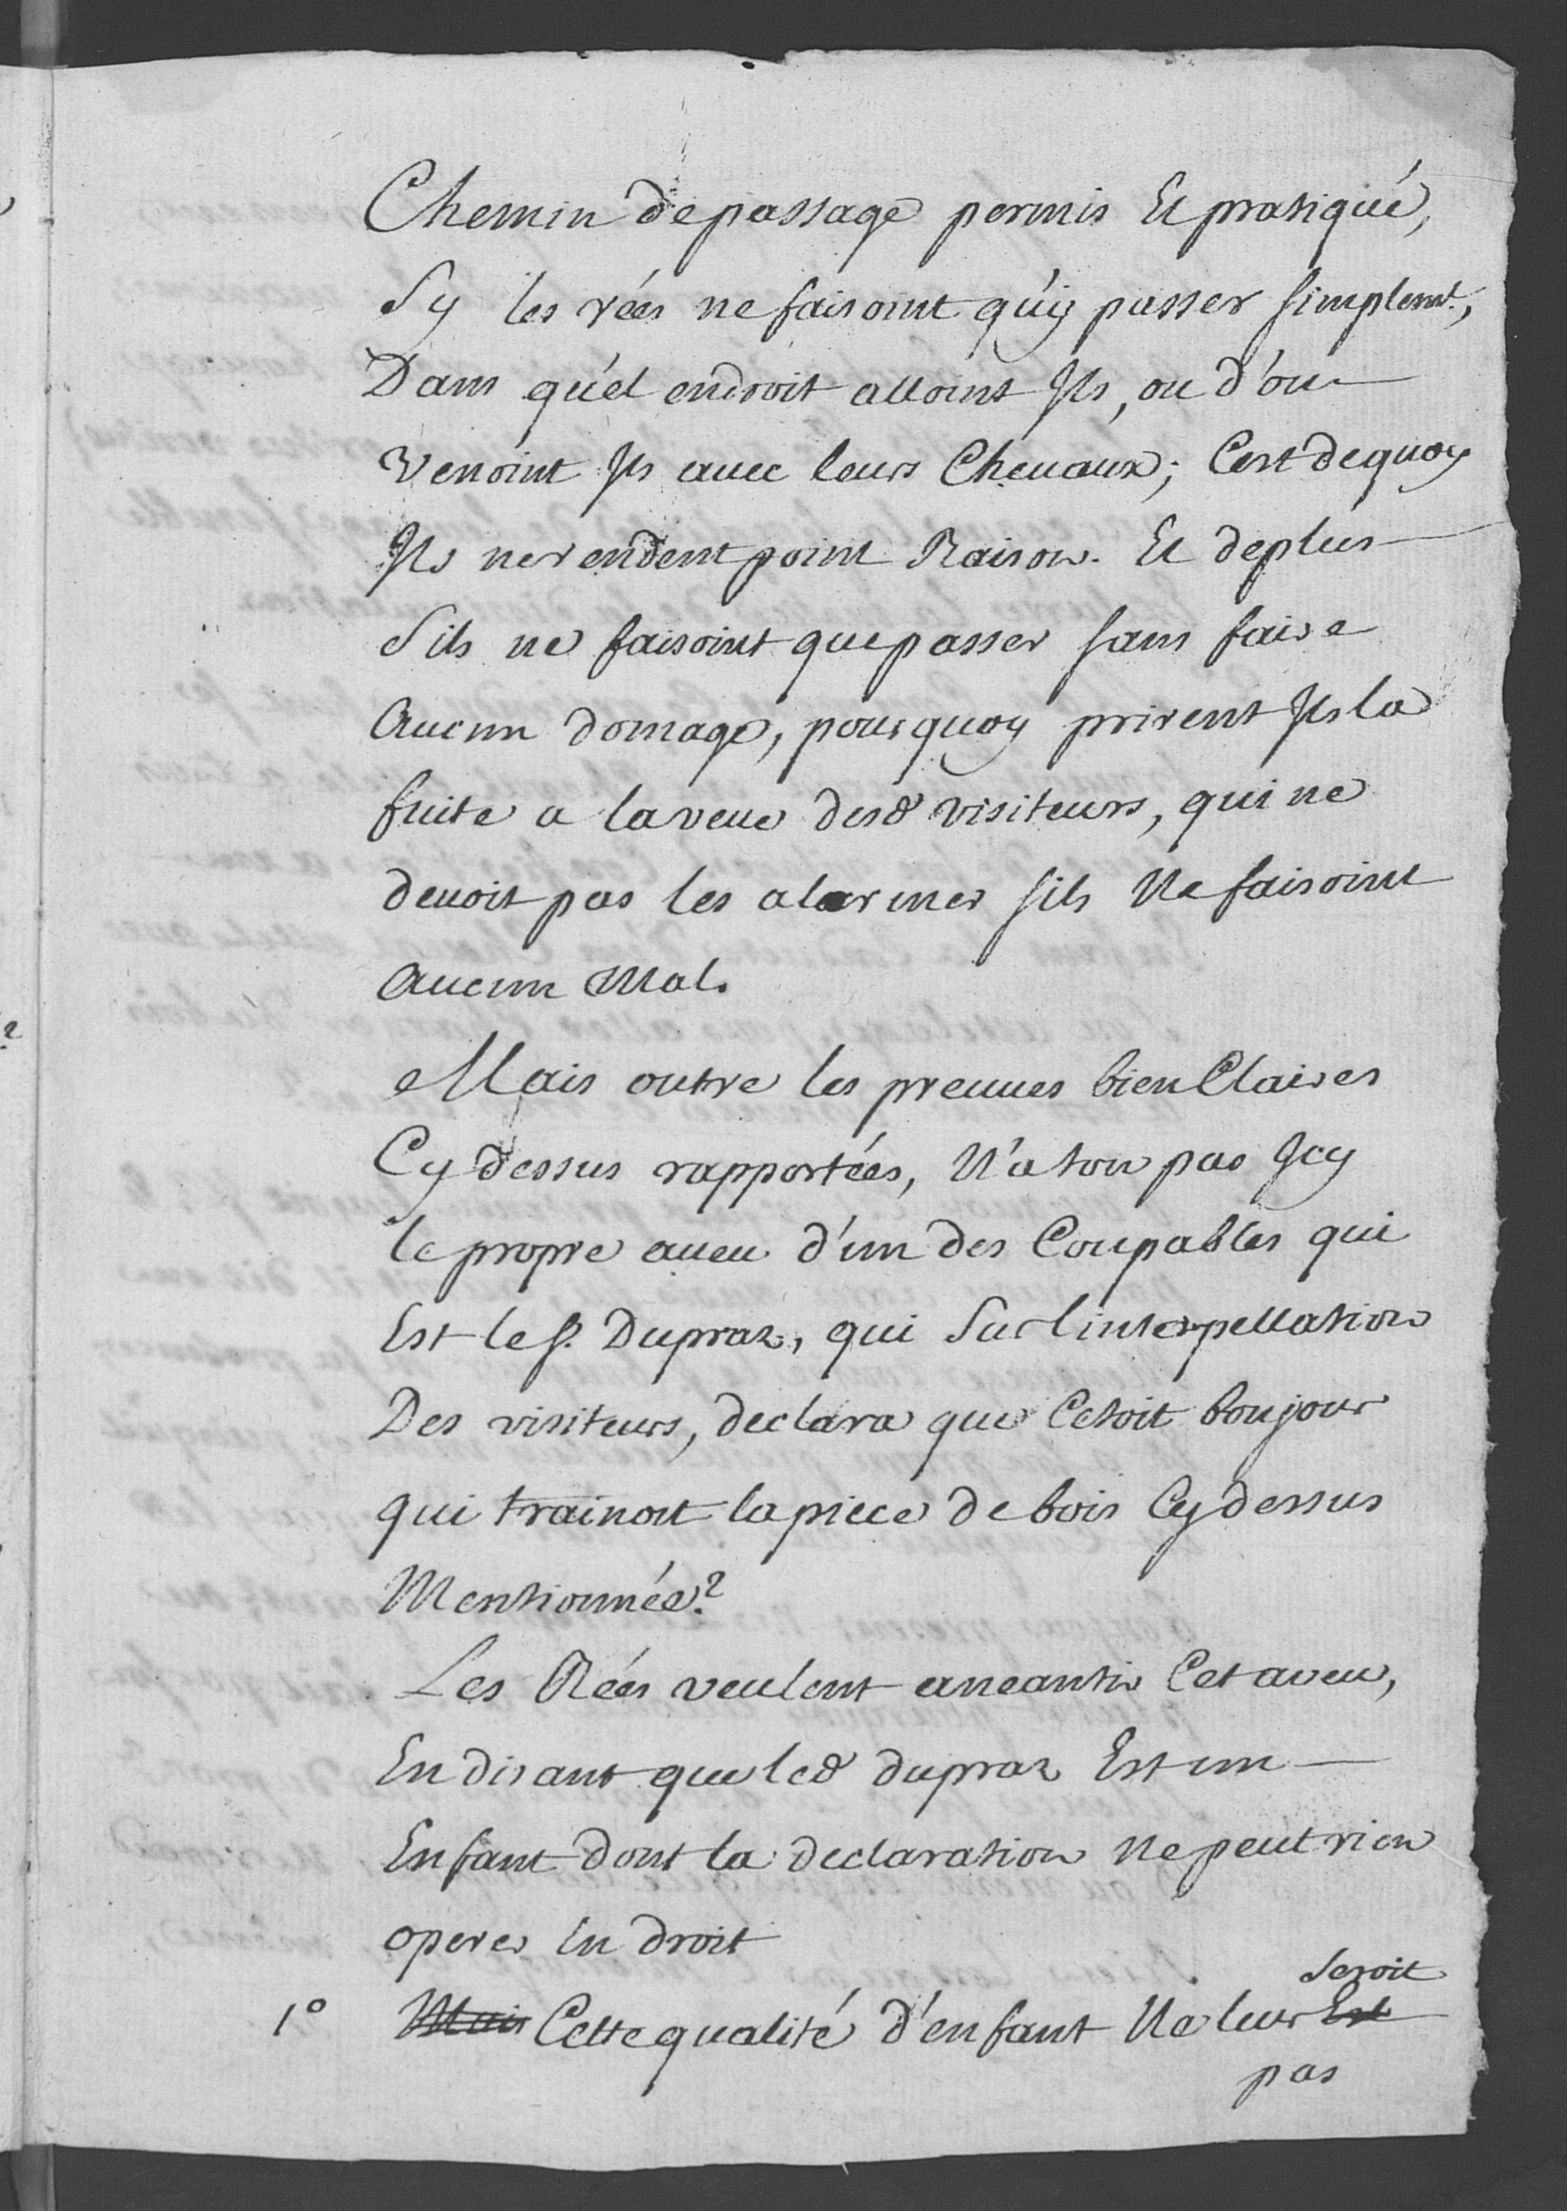 Chemin de passage permis Et pratiqué,
Sy les rées ne faisoint qu'y passer simplemt.,
Dans qu'el endroit alloint Ils, ou d'ou
Venoint Ils avec leurs Chevaux; C'est dequoy
Ils ne rendent point Raison. Et deplus
S'ils ne faisoint que passer sans faire
Aucun domage, pourquoy prirent Ils la
fuite a la veue desd visiteurs, qui ne
devoit pas les alarmer sils Ne faisoint
Aucun Mal.
Mais outre les preuves bien Claires
Cy dessus rapportées, N'a ton pas Icy
le propre aveu d'un des Coupables qui
Est le sr. Dupraz, qui Sur l'interpellation
Des visiteurs, declara que Cetoit bonjour
qui trainoit la piece de bois Cy dessus
Mentionnée?
Les Rées veulent aneantir Cet aveu,
En disant que led dupraz Est un
Enfant dont la declaration Ne peut rien
operer En droit
1° Mais Cette qualité d'enfant Ne leur Est seroit
pas